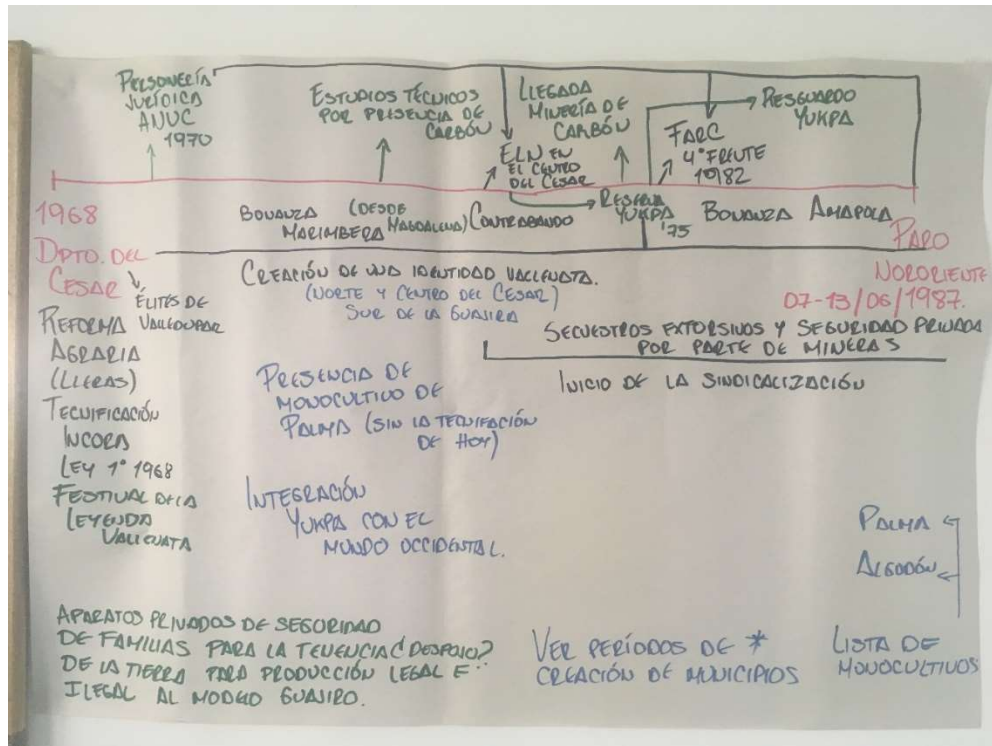 PERSONERÍA
JURÍDICA
ANUC
1970
ESTUDIOS TÉCNICOS
POR PRESENCIA DE
CARBÓN
LLEGADA
MINERÍA DE
CARBÓN
ELN EN
EL CENTRO
DEL CESAR
FARC
4° FRENTE
1982
RESGUARDO
YUKPA
1968
DPTO. DEL
CESAR
BONANZA
MARIMBERA
(DESDE
MAGDALENA)
CONTRABANDO
RESERVA
YUKPA
'75
BONANZA AMAPOLA
PARO
NORORIENTE
07-13/06/1987.
ÉLITES DE
VALLEDUPAR
REFORMA
AGRARIA
(LLERAS)
TECNIFICACIÓN
INCORA
LEY 1° 1968
FESTIVAL DE LA
LEYENDA
VALLENATA
CREACIÓN DE UNA IDENTIDAD VALLENATA.
(NORTE Y CENTRO DEL CESAR)
SUR DE LA GUAJIRA
SECUESTROS EXTORSIVOS Y SEGURIDAD PRIVADA
POR PARTE DE MINERAS
INICIO DE LA SINDICALIZACIÓN
PRESENCIA DE
MONOCULTIVO DE
PALMA (SIN LA TECNIFACIÓN
DE HOY)
INTEGRACIÓN
YUKPA CON EL
MUNDO OCCIDENTAL.
PALMA
ALGODÓN
LISTA DE
MONOCULTIVOS
APARATOS PRIVADOS DE SEGURIDAD
DE FAMILIAS PARA LA TENENCIA ¿DESPOJO?
DE LA TIERRA PARA PRODUCCIÓN LEGAL E
ILEGAL AL MODELO GUAJIRO.
VER PERÍODOS DE *
CREACIÓN DE MUNICIPIOS